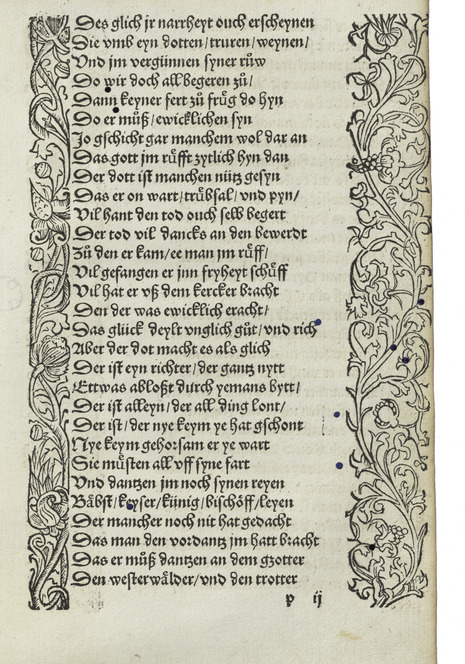 Des glich jr narrheyt ouch erscheynen
Die vmb eyn dotten/truren/weynen/
Vnd jm vergünnen syner růw
Do wir doch all begeren zů/
Dann keyner fert zů frůg do hyn
Do er můß/ewicklichen syn
Jo gschicht gar manchem wol dar an
Das gott jm rüfft zytlich hyn dan
Der dott ist manchen nütz gesyn
Das er on wart/trübsal/vnd pyn/
Vil hant den tod ouch selb begert
Der tod vil dancks an den bewerdt
Zů den er kam/ee man jm rüff/
Vil gefangen er jnn fryheyt schüff
Vil hat er vß dem kercker bracht
Den der was ewicklich eracht/
Das glück deylt vnglich gůt/vnd rich
Aber der dot macht es als glich
Der ist eyn richter/der gantz nytt
Ettwas abloßt durch yemans bytt/
Der ist alleyn/der all ding lont/
Der ist/der nye keym ye hat gschont
Nye keym gehorsam er ye wart
Sie můsten all vff syne fart
Vnd dantzen jm noch synen reyen
Bäbst/keyser/künig/bischöff/leyen
Der mancher noch nit hat gedacht
Das man den vordantz jm hatt bracht
Das er můß dantzen an dem gzotter
Den westerwälder/vnd den trotter
p ij